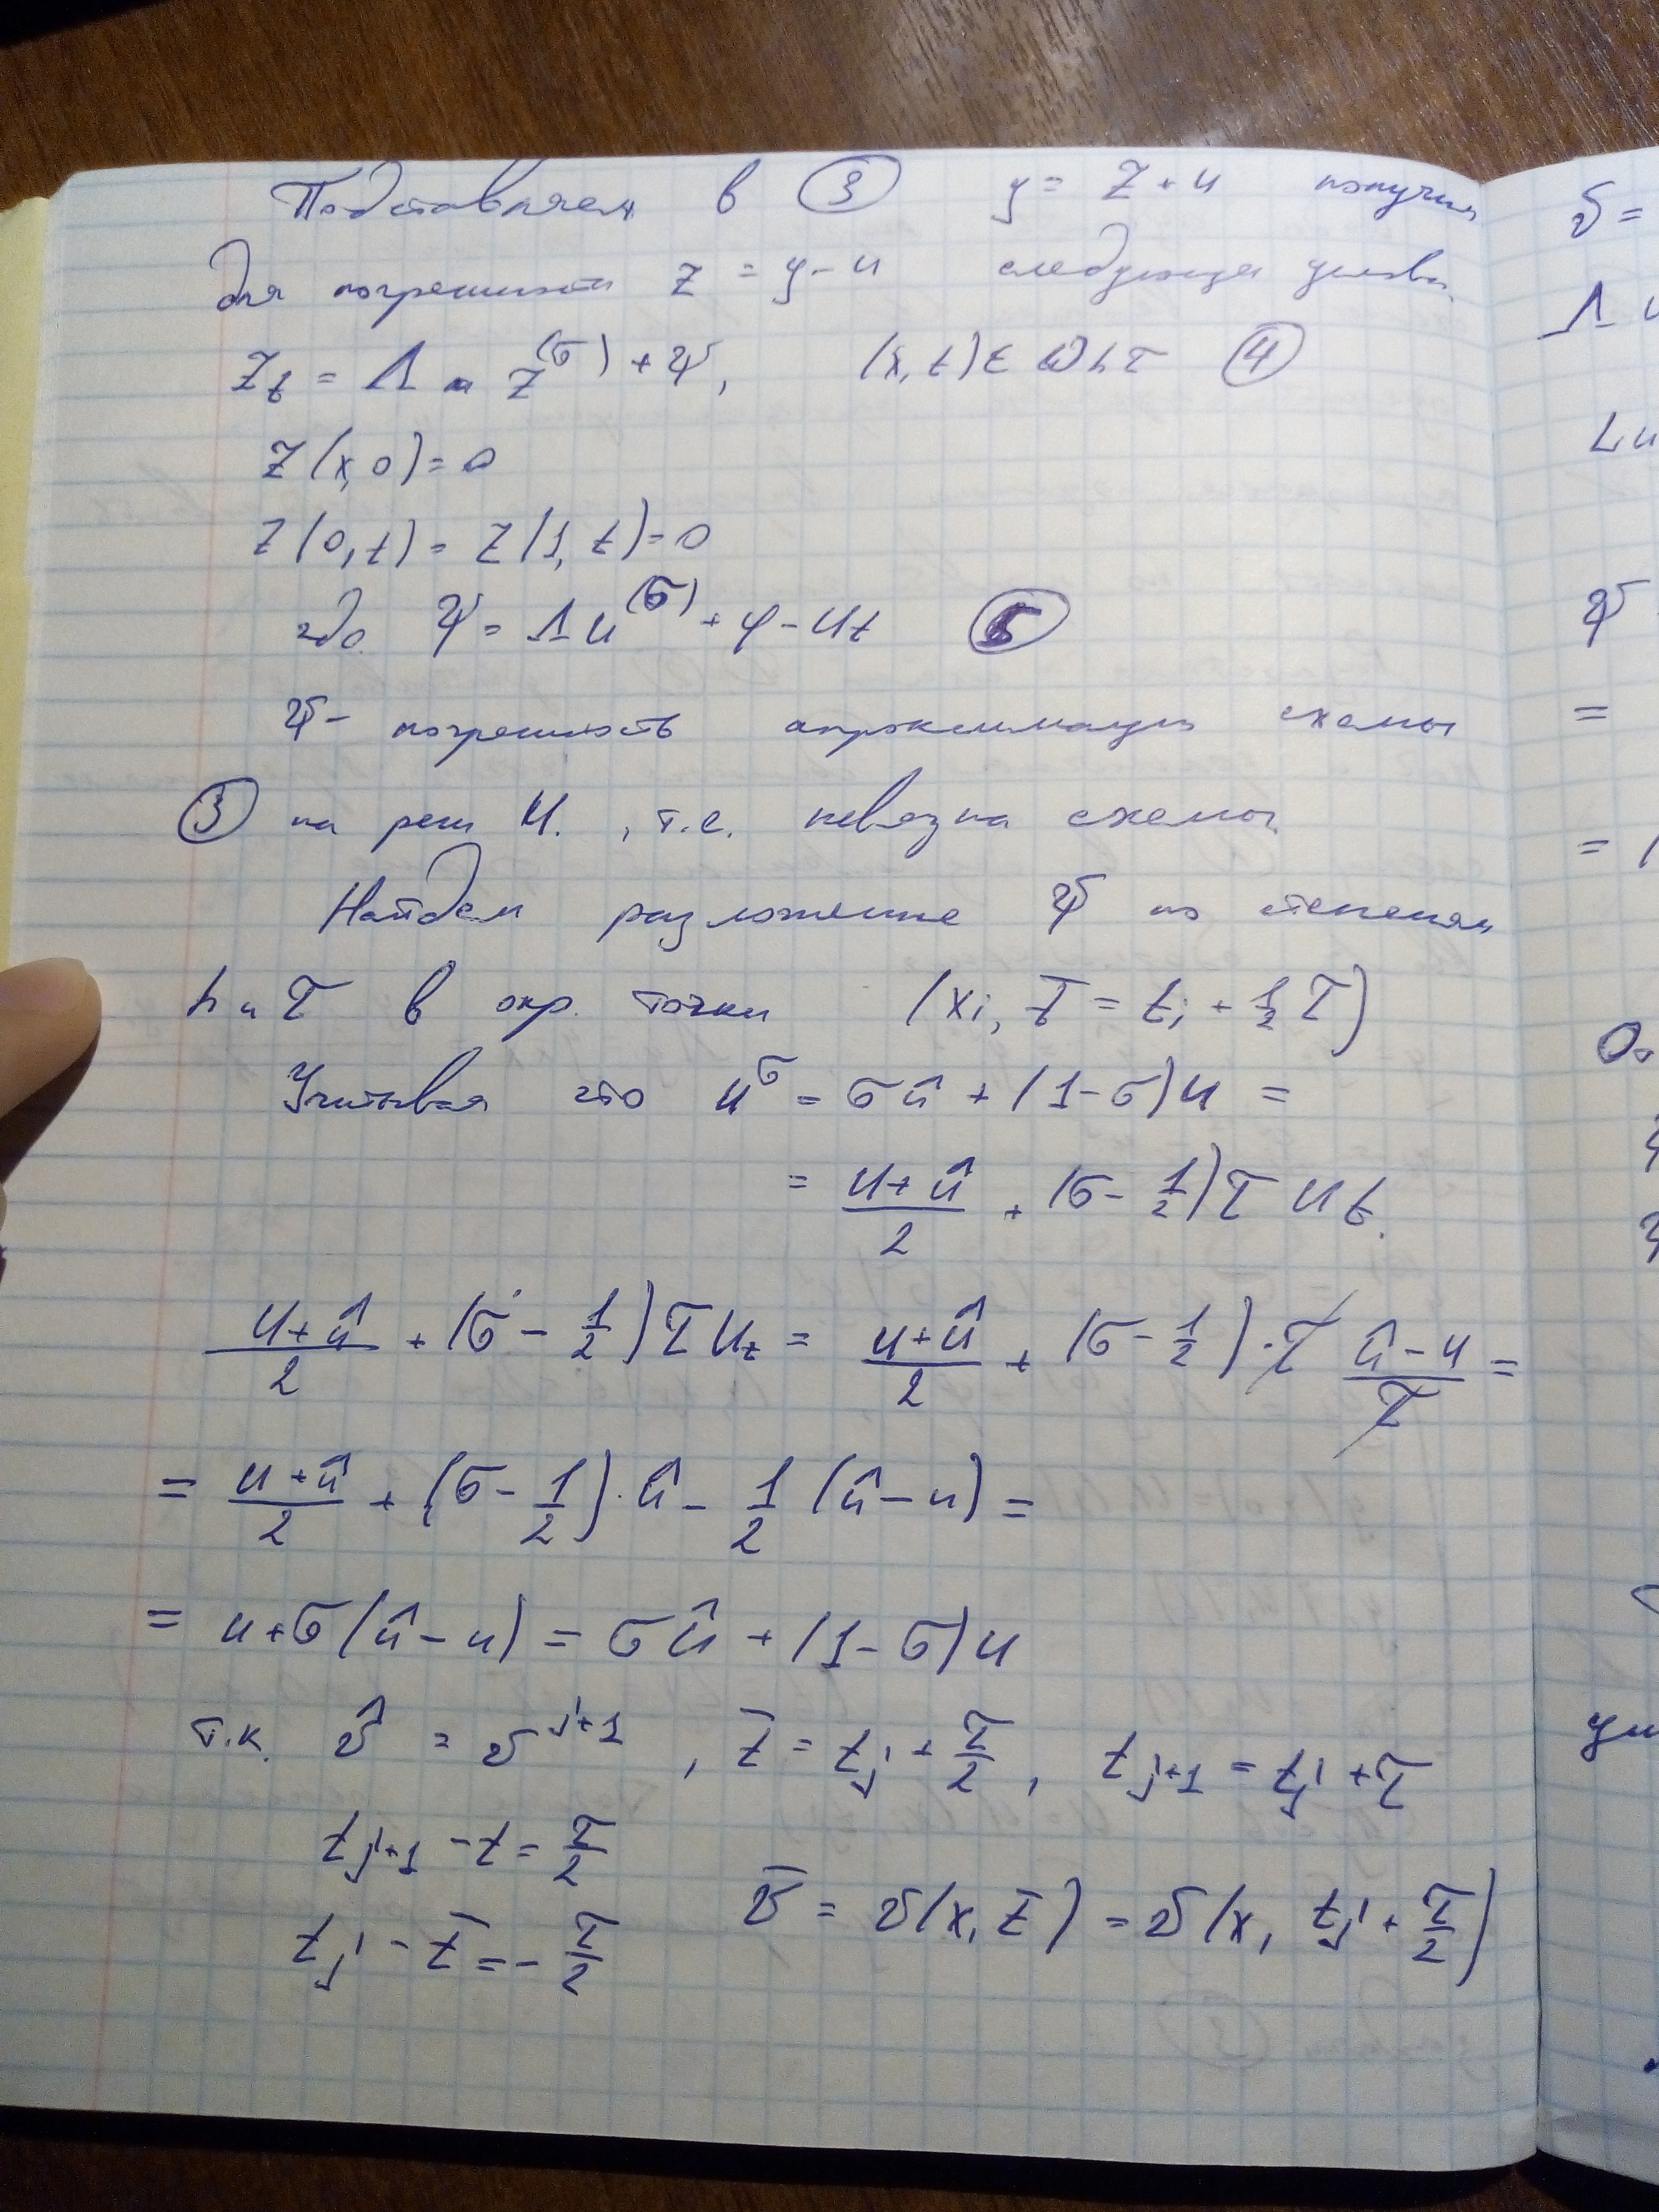 Подставляем в ③ y = z + u получим
для погрешности z = y - u следующие условия
z_t = Λ z^(σ) + ψ, (x, t) ∈ ω_hτ ④
z(x, 0) = 0
z(0, t) = z(1, t) = 0
где ψ = Λu^(σ) + φ - u_t ⑤
ψ - погрешность апроксимации схемы
③ на реш u. , т.е. невязка схемы
Найдем разложение ψ по степеням
h и τ в окр. точки (x_i, t̄ = t_j + 1/2 τ)
Учитывая что u^σ = σû + (1-σ)u =
= (u + û)/2 + (σ - 1/2)τ u_t.
(u + û)/2 + (σ - 1/2)τ u_t = (u + û)/2 + (σ - 1/2)·τ (û - u)/τ =
= (u + û)/2 + (σ - 1/2)·û - 1/2 (û - u) =
= u + σ(û - u) = σû + (1 - σ)u
т.к. v̂ = v^(j+1), t̄ = t_j + τ/2, t_(j+1) = t_j + τ
t_(j+1) - t = τ/2
t_j - t̄ = - τ/2 v̄ = v(x, t̄) = v(x, t_j + τ/2)
v =
Λ u
Lu
ψ
=
= (
ум